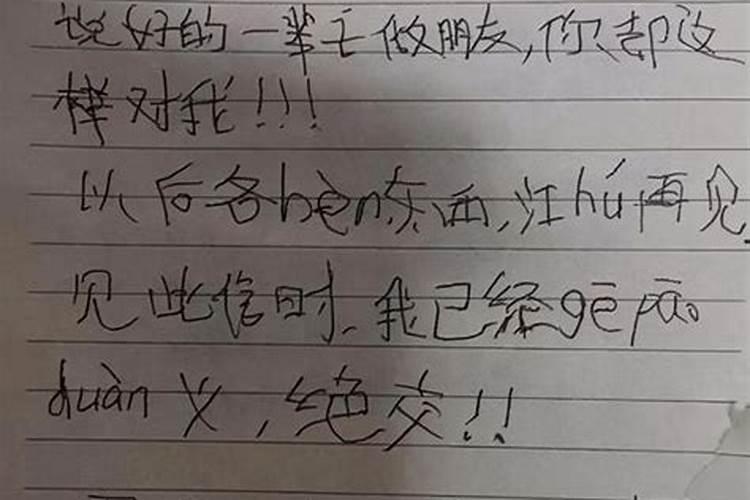 说好的一辈子做朋友,你却这
样对我!!!
以后各bèn东西,江hú再见.
见此信时、我已经gē pāo
duàn 义,绝交!!